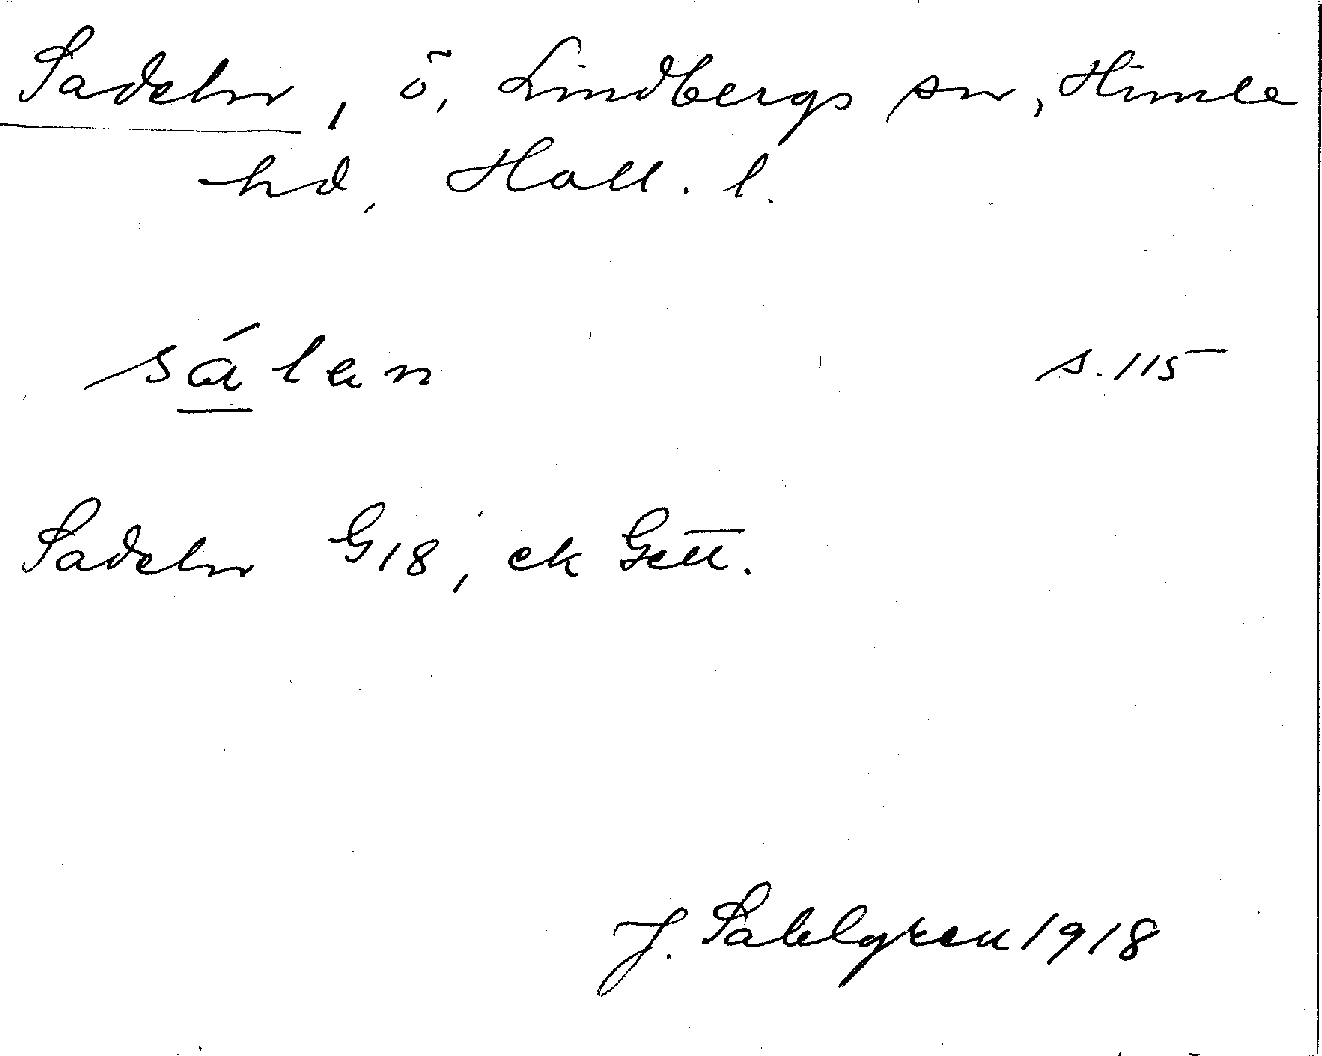 Sadeln, ö, Lindbergs sn, Himle
hd, Hall. l.
sálen s. 115
Sadeln G18, ek Gett.
J. Sahlgren 1918